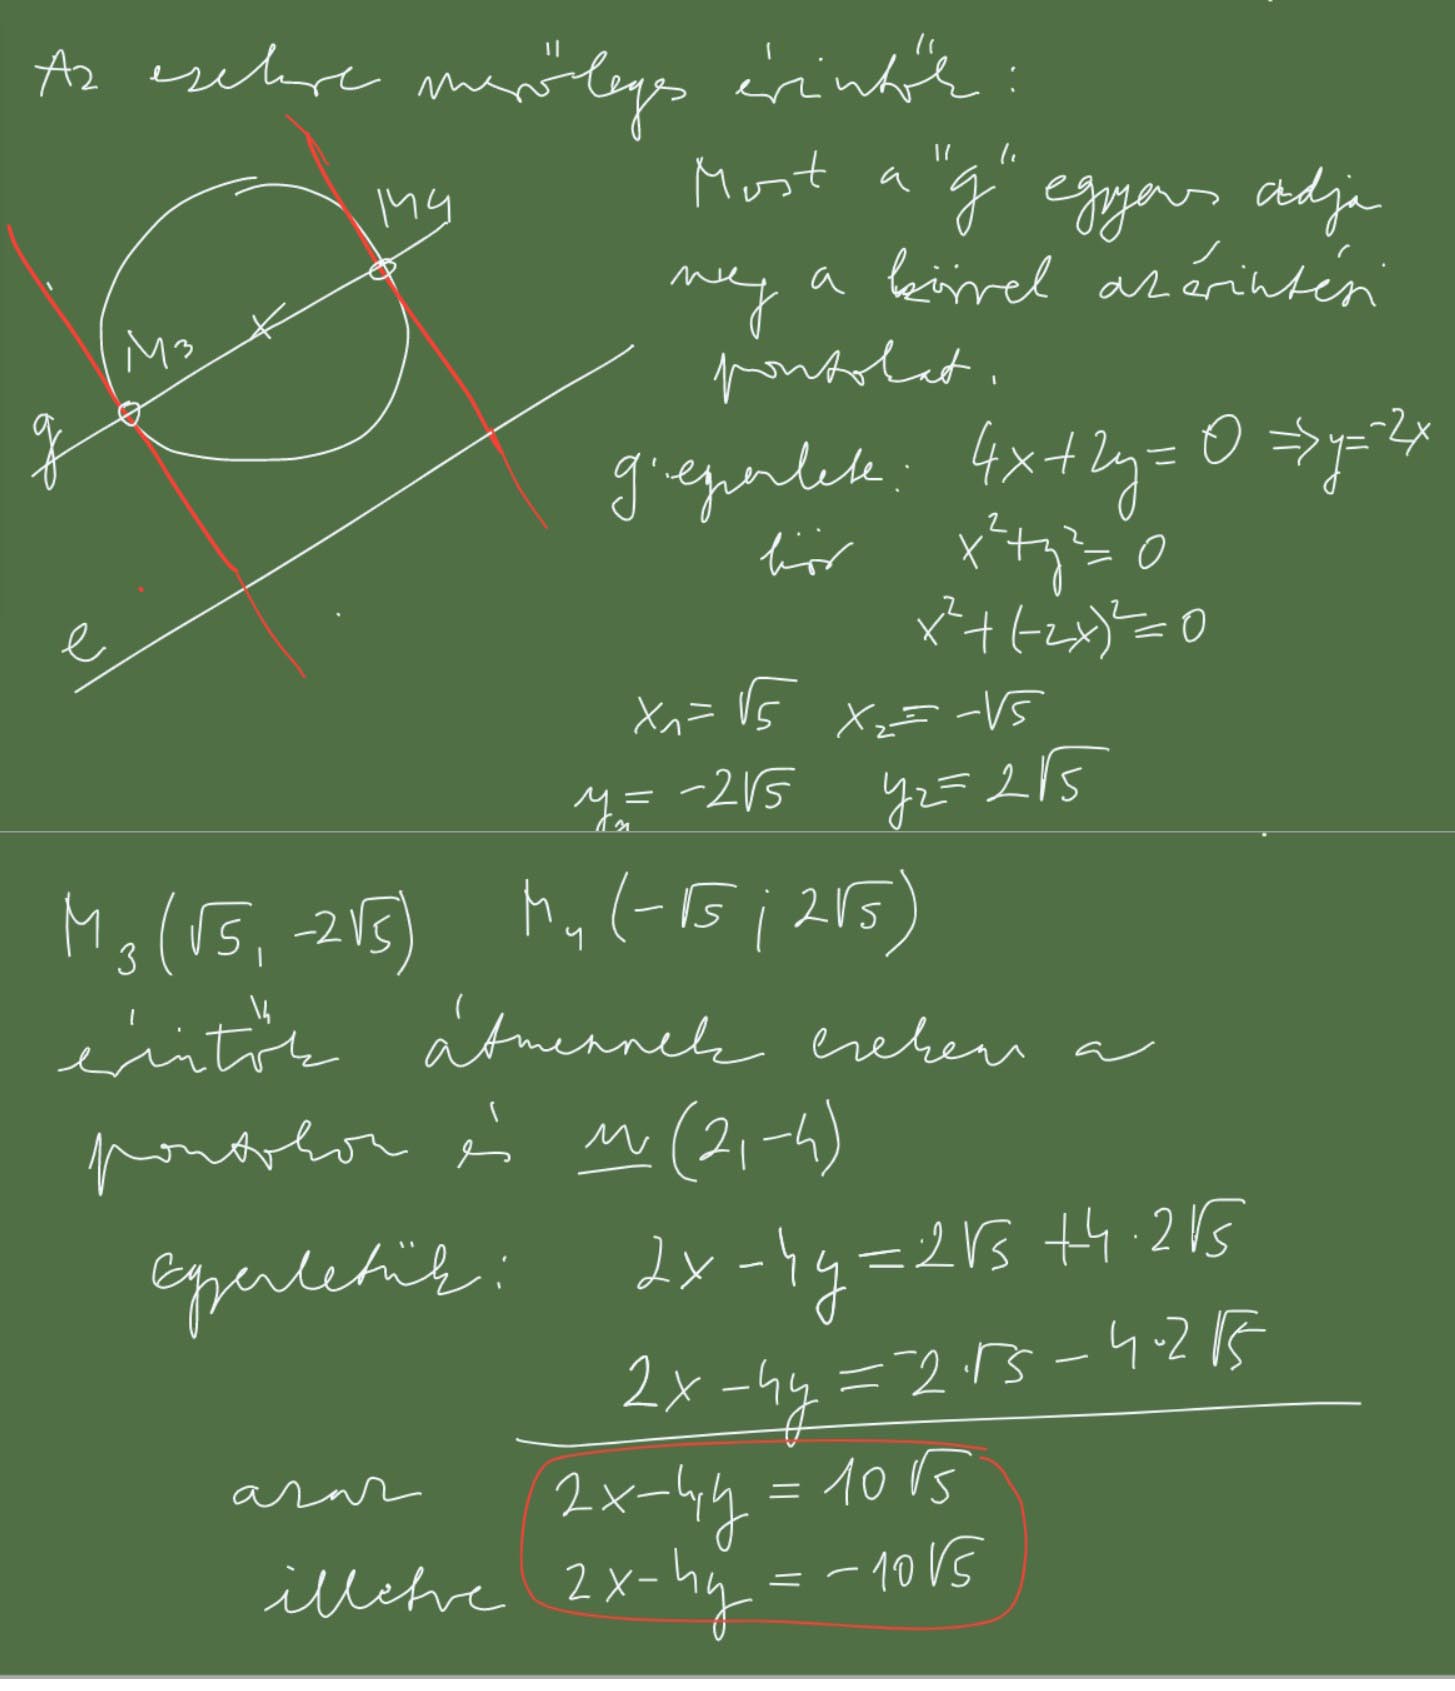 Az ezekre merőleges érintők:
M4
Most a "g" egyenes adja
meg a körrel az érintési
M3
pontokat.
g
g egyenlete: 4x+2y=0 ⇒ y=-2x
kör x²+y²=0
x²+(-2x)²=0
e
x₁=√5 x₂=-√5
y₁=-2√5 y₂=2√5
M₃(√5, -2√5) M₄(-√5; 2√5)
érintők átmennek ezeken a
pontokon és n(2,-4)
Egyenletük: 2x-4y=2√5+4·2√5
2x-4y=-2·√5-4·2√5
azaz 2x-4y=10√5
illetve 2x-4y=-10√5